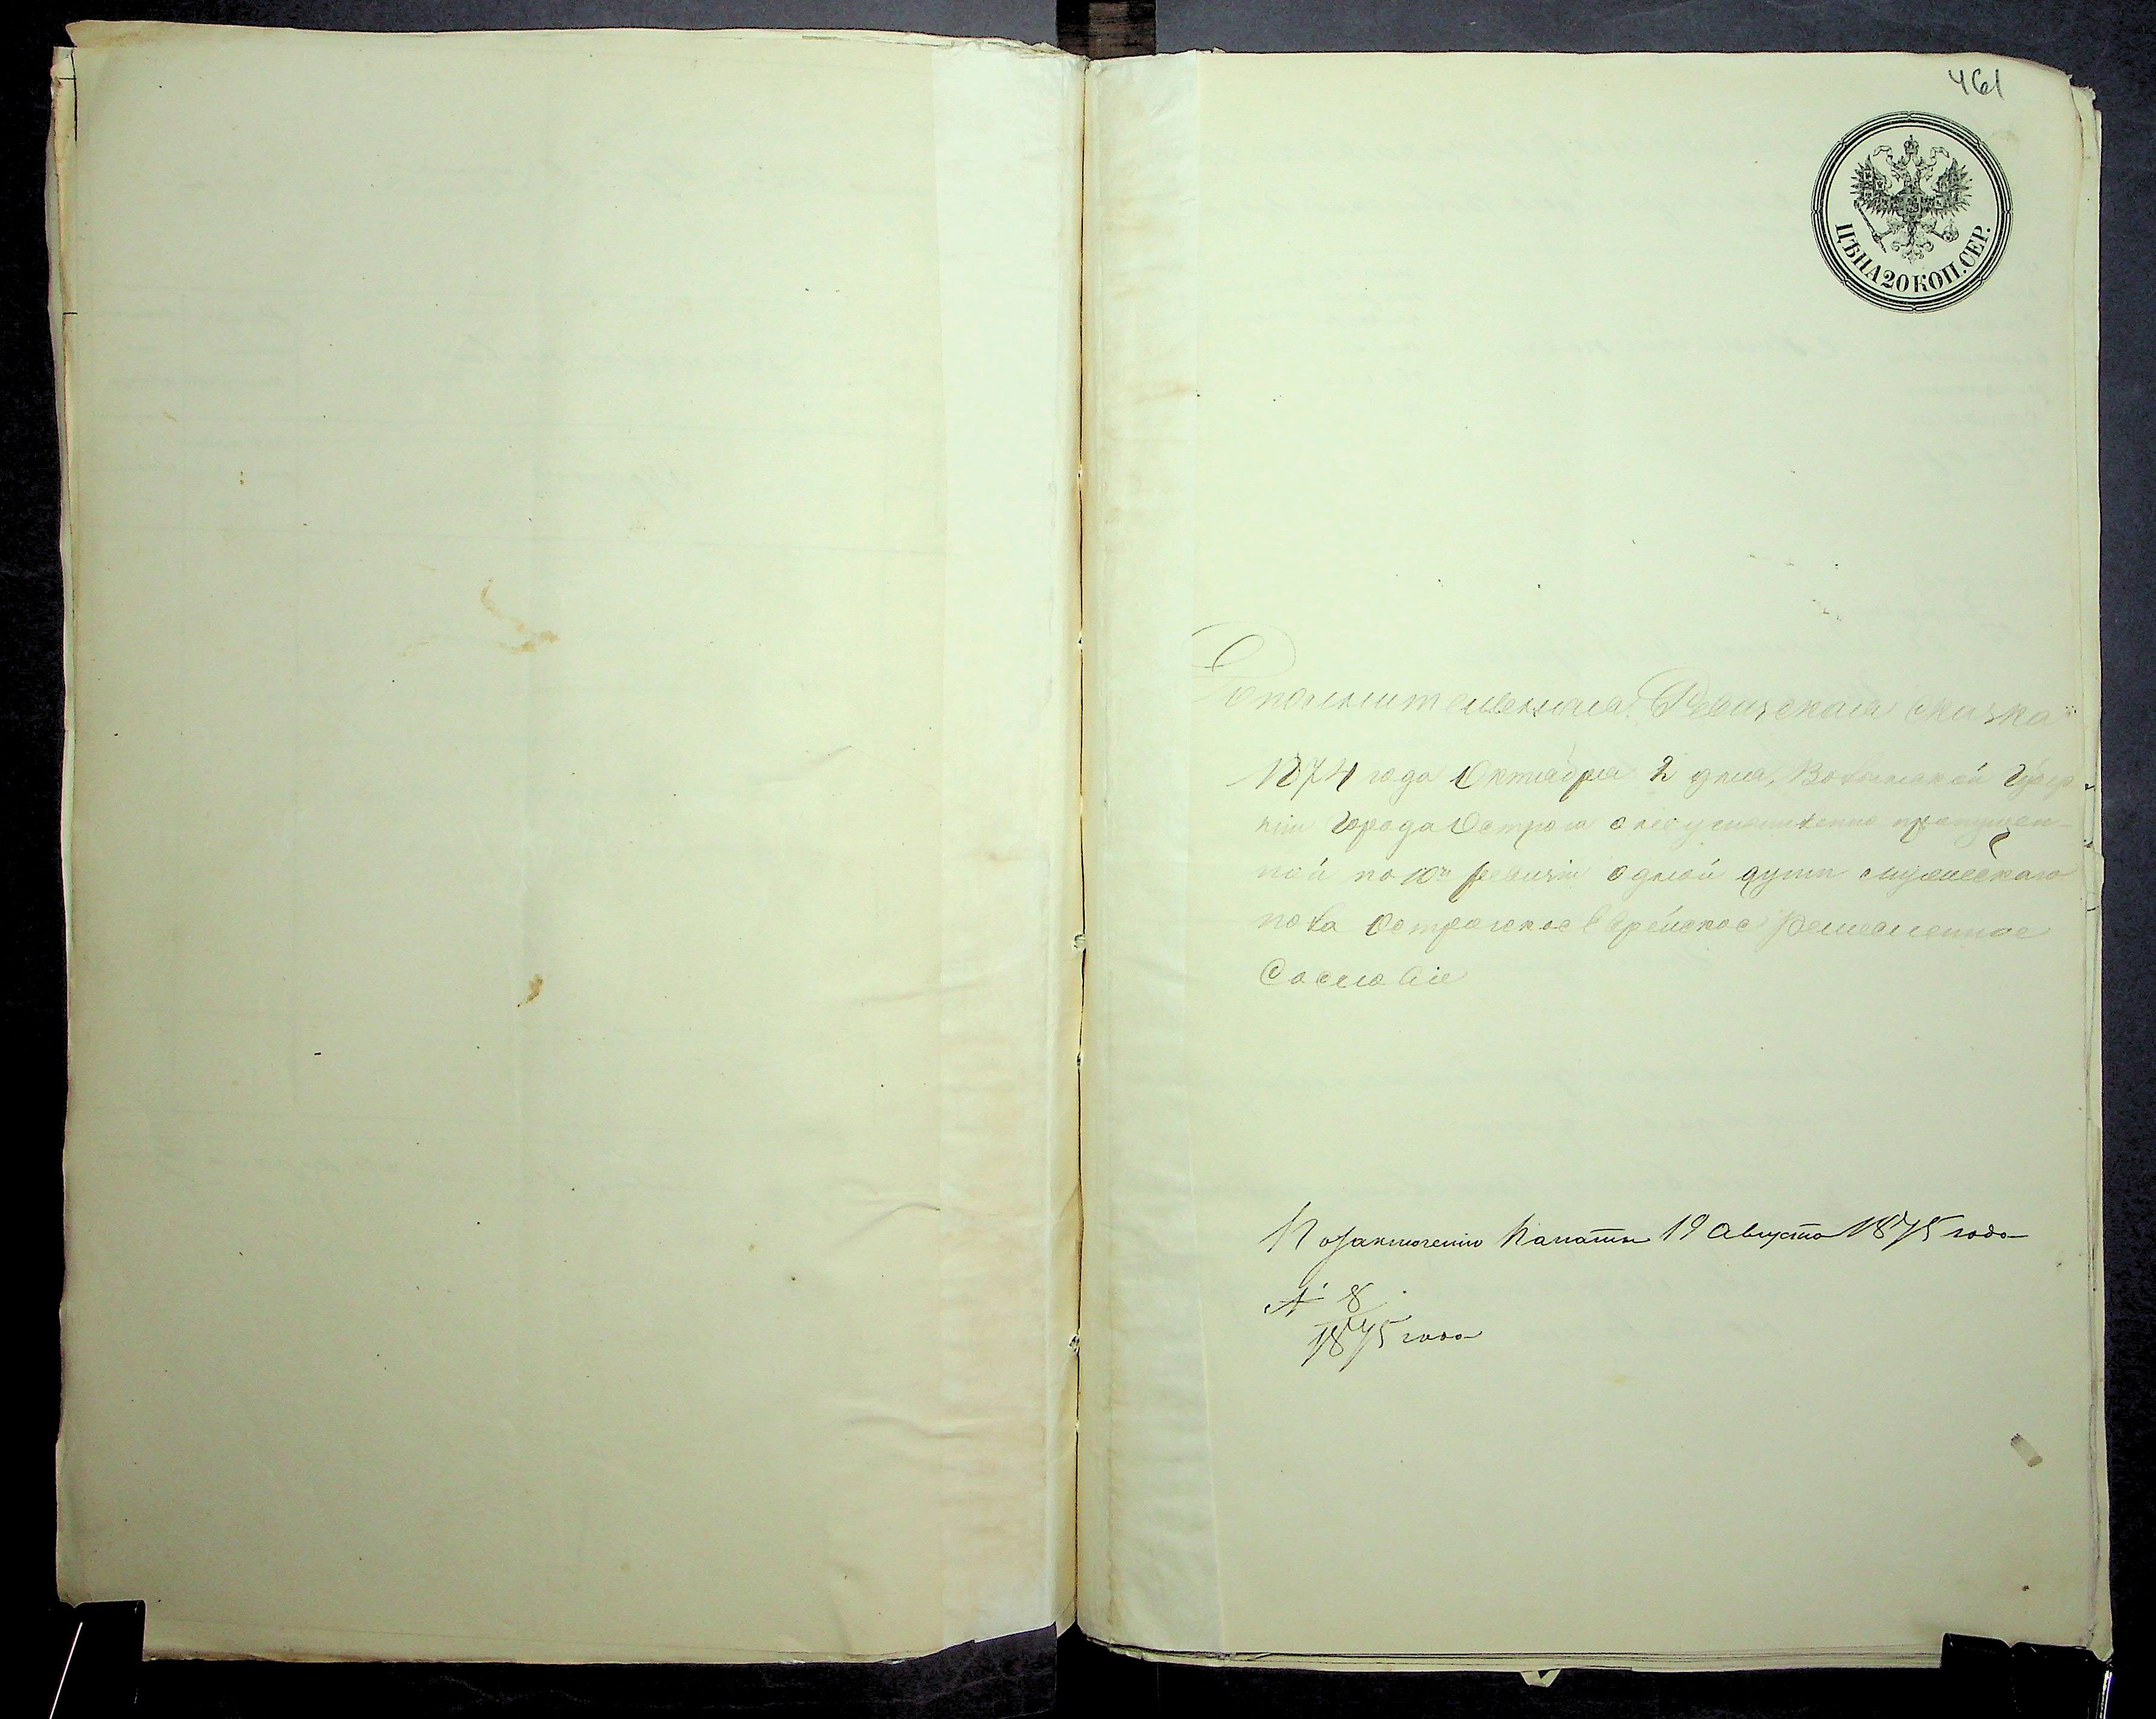 461
ЦѢНА 20 КОП. СЕР.
Дополнительная Ревизская сказка
1874 года Октября 2 дня, Волынской Губер
ніи Города Острога о неумышленно пропущен-
ной по 10й ревизіи одной души мужескаго
пола Острожское Еврейское Ремесленное
Сословіе
По заключенію Палаты 19 Августа 1875 года
№ 8
1875 года